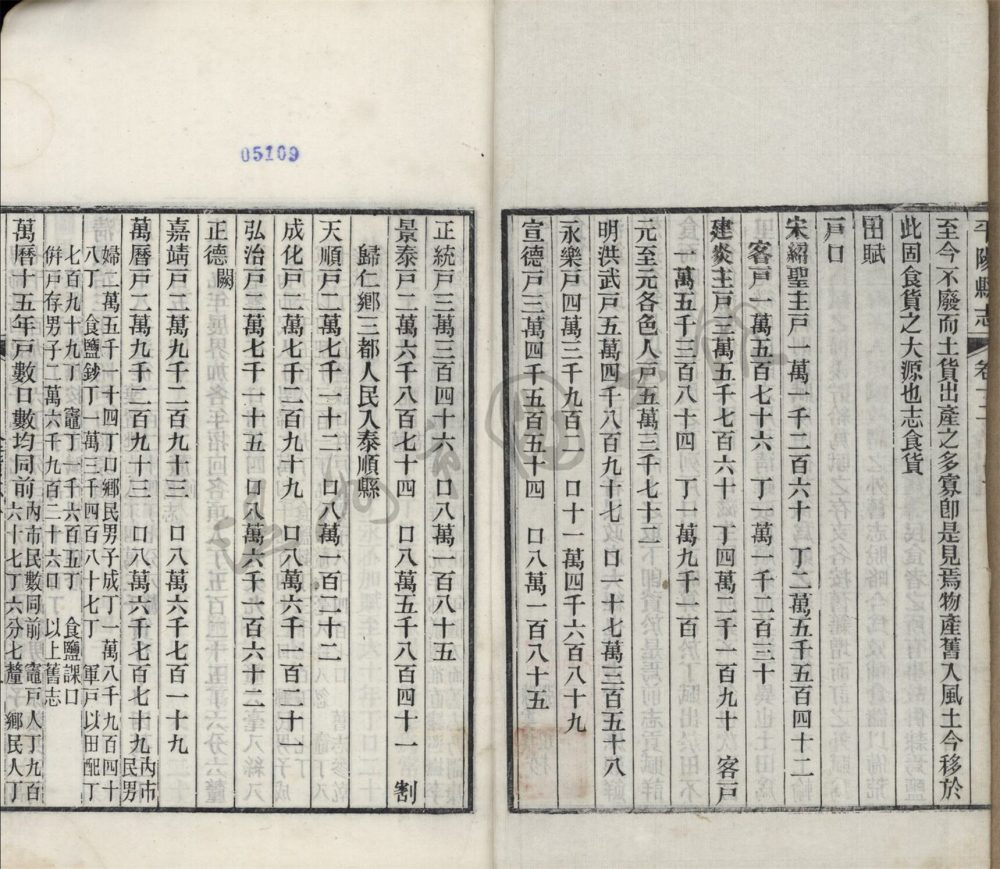 平陽縣志 卷十二
至今不廢而土貨出產之多寡卽是見焉物產舊入風土今移於
此固食貨之大源也志食貨
田賦
戶口
宋紹聖主戶一萬一千二百六十 丁二萬五千五百四十二
客戶一萬五百七十六 丁一萬一千二百三十
建炎主戶三萬五千七百六十 丁四萬二千一百九十 客戶
一萬五千三百八十四 丁一萬九千一百
元至元各色人戶五萬三千七十二
明洪武戶五萬四千八百九十七 口一十七萬三百五十八
永樂戶四萬三千九百二 口十一萬四千六百八十九
宣德戶三萬四千五百五十四 口八萬一百八十五
正統戶三萬三百四十六 口八萬一百八十五
景泰戶二萬六千八百七十四 口八萬五千八百四十一 割
歸仁鄉三都人民入泰順縣
天順戶二萬七千一十二 口八萬一百二十二
成化戶二萬七千二百九十九 口八萬六千一百二十一
弘治戶二萬七千一十五 口八萬六千一百六十二
正德闕
嘉靖戶二萬九千二百九十三 口八萬六千七百一十九
萬曆戶二萬九千二百九十三 口八萬六千七百七十九內市民男
婦二萬五千一十四丁口鄉民男子成丁一萬八千九百四十
八丁 食鹽鈔丁一萬三千四百八十七丁 軍戶以田配丁
七百九十九丁 竈丁一千六百五丁 食鹽課口
併戶存男子二萬六千九百二十六口 以上舊志
萬曆十五年戶數口數均同前內市民數同前 竈戶人丁九百
六十七丁六分七釐 鄉民人丁
05109